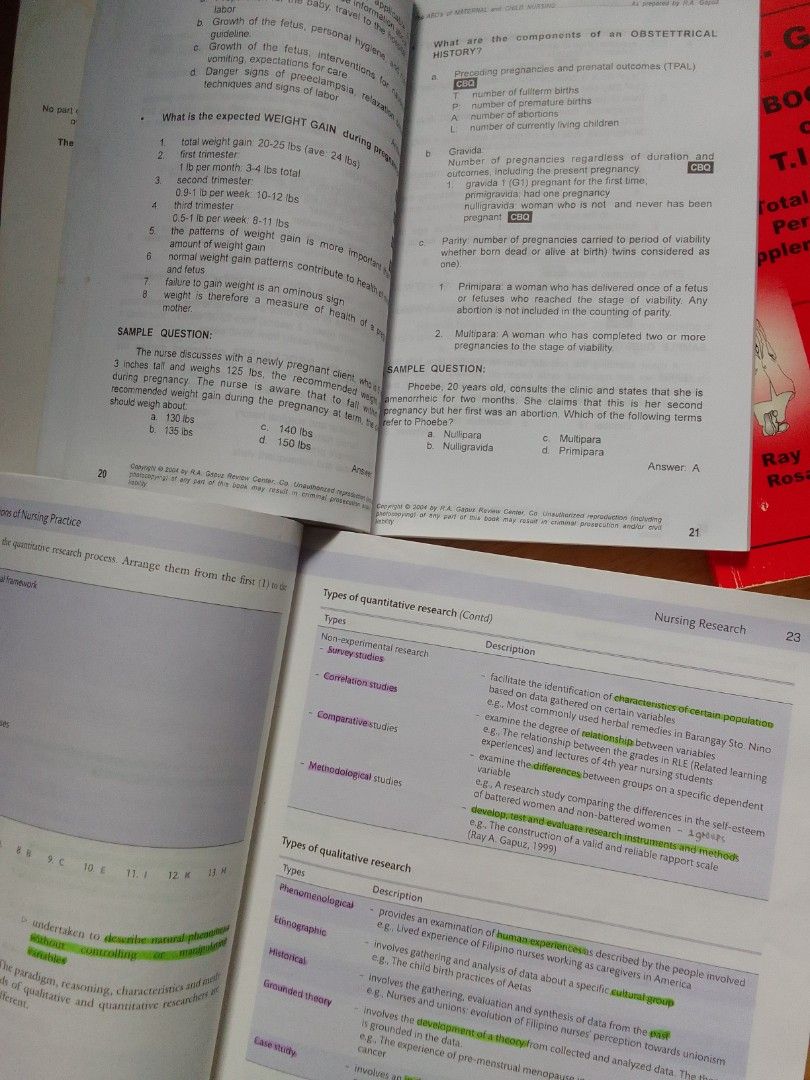 labor
b. Growth of the fetus, personal hygiene,
guideline.
c. Growth of the fetus, interventions for
vomiting, expectations for care
d. Danger signs of preeclampsia, relaxation
techniques and signs of labor
• What is the expected WEIGHT GAIN during
1. total weight gain: 20-25 lbs (ave: 24 lbs)
2. first trimester:
1 lb per month: 3-4 lbs total
3. second trimester:
0.9-1 lb per week: 10-12 lbs
4. third trimester
0.5-1 lb per week: 8-11 lbs
5. the patterns of weight gain is more important
amount of weight gain
6. normal weight gain patterns contribute to health of
and fetus
7. failure to gain weight is an ominous sign
8. weight is therefore a measure of health of a
mother.
SAMPLE QUESTION:
The nurse discusses with a newly pregnant client, who is
3 inches tall and weighs 125 lbs, the recommended weight
during pregnancy. The nurse is aware that to fall within
recommended weight gain during the pregnancy at term, the
should weigh about:
a. 130 lbs
b. 135 lbs
c. 140 lbs
d. 150 lbs
Answer
20
Copyright © 2004 by R.A. Gapuz Review Center, Co. Unauthorized reproduction
photocopying) of any part of this book may result in criminal prosecution
liability
ABC's of MATERNAL and CHILD NURSING
As prepared by R.A. Gapuz
What are the components of an OBSTETTRICAL
HISTORY?
a. Preceding pregnancies and prenatal outcomes (TPAL)
CBQ
T number of fullterm births
P: number of premature births
A: number of abortions
L: number of currently living children
b Gravida:
Number of pregnancies regardless of duration and
outcomes, including the present pregnancy. CBQ
1. gravida 1 (G1) pregnant for the first time;
primigravida: had one pregnancy
nulligravida: woman who is not and never has been
pregnant CBQ
c. Parity: number of pregnancies carried to period of viability
whether born dead or alive at birth) twins considered as
one).
1. Primipara: a woman who has delivered once of a fetus
or fetuses who reached the stage of viability. Any
abortion is not included in the counting of parity.
2. Multipara: A woman who has completed two or more
pregnancies to the stage of viability.
SAMPLE QUESTION:
Phoebe, 20 years old, consults the clinic and states that she is
amenorrheic for two months. She claims that this is her second
pregnancy but her first was an abortion. Which of the following terms
refer to Phoebe?
a. Nullipara
b. Nulligravida
c. Multipara
d. Primipara
Answer: A
Copyright © 2004 by R.A. Gapuz Review Center, Co. Unauthorized reproduction (including
photocopying) of any part of this book may result in criminal prosecution and/or civil
liability
21
No part
The
BOO
T.I
Total
Per
Ray
Rosa
of Nursing Practice
the quantitative research process. Arrange them from the first (1) to the
framework
8 B 9. C 10. E 11. I 12. K 13. H
undertaken to describe natural
without controlling or manipulating
variables
The paradigm, reasoning, characteristics and
of qualitative and quantitative researchers are
Nursing Research 23
Types of quantitative research (Contd)
Types Description
Non-experimental research
- Survey studies
- facilitate the identification of characteristics of certain population
based on data gathered on certain variables
e.g., Most commonly used herbal remedies in Barangay Sto. Nino
- Correlation studies
- examine the degree of relationship between variables
e.g., The relationship between the grades in RLE (Related learning
experiences) and lectures of 4th year nursing students
- Comparative studies
- examine the differences between groups on a specific dependent
variable
e.g., A research study comparing the differences in the self-esteem
of battered women and non-battered women
- Methodological studies
- develop, test and evaluate research instruments and methods
e.g., The construction of a valid and reliable rapport scale
(Ray A. Gapuz, 1999)
Types of qualitative research
Types Description
Phenomenological
- provides an examination of human experiences as described by the people involved
e.g., Lived experience of Filipino nurses working as caregivers in America
Ethnographic
- involves gathering and analysis of data about a specific cultural group
e.g., The child birth practices of Aetas
Historical
- involves the gathering, evaluation and synthesis of data from the past
e.g., Nurses and unions: evolution of Filipino nurses' perception towards unionism
Grounded theory
- involves the development of a theory from collected and analyzed data. The
is grounded in the data.
e.g., The experience of pre-menstrual menopause
cancer
Case study
- involves an